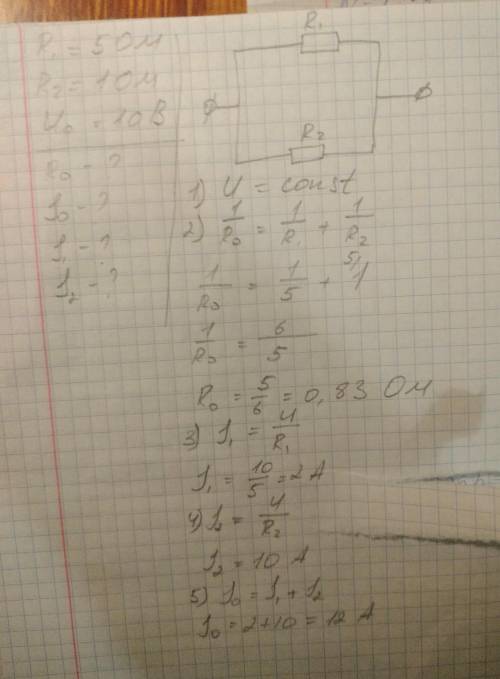 R₁ = 5 Ом
R₂ = 1 Ом
U₀ = 10 В
R₀ - ?
I₀ - ?
I₁ - ?
I₂ - ?
R₁
R₂
1) U = const
2) 1/R₀ = 1/R₁ + 1/R₂
1/R₀ = 1/5 + 5/1
1/R₀ = 6/5
R₀ = 5/6 = 0,83 Ом
3) I₁ = U/R₁
I₁ = 10/5 = 2 А
4) I₂ = U/R₂
I₂ = 10 А
5) I₀ = I₁ + I₂
I₀ = 2+10 = 12 А